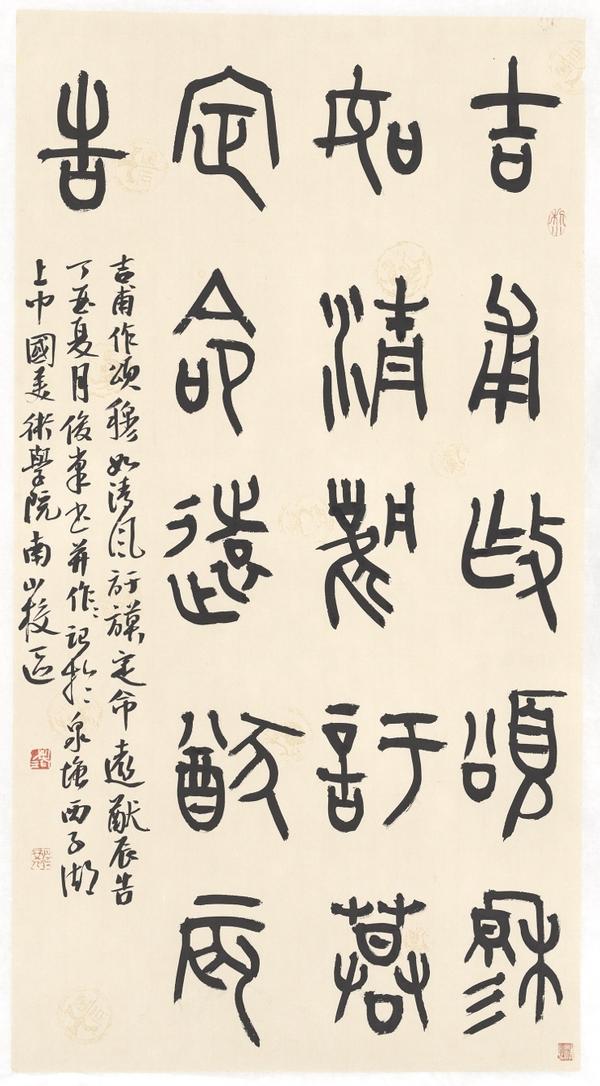 吉甫作頌穆
如清風訏謨
定命遠猷辰
告
吉甫作頌穆如清風訏謨定命遠猷辰告
丁亥夏月俊书并作記於泉塘西子湖
上中國美術學院南山校區